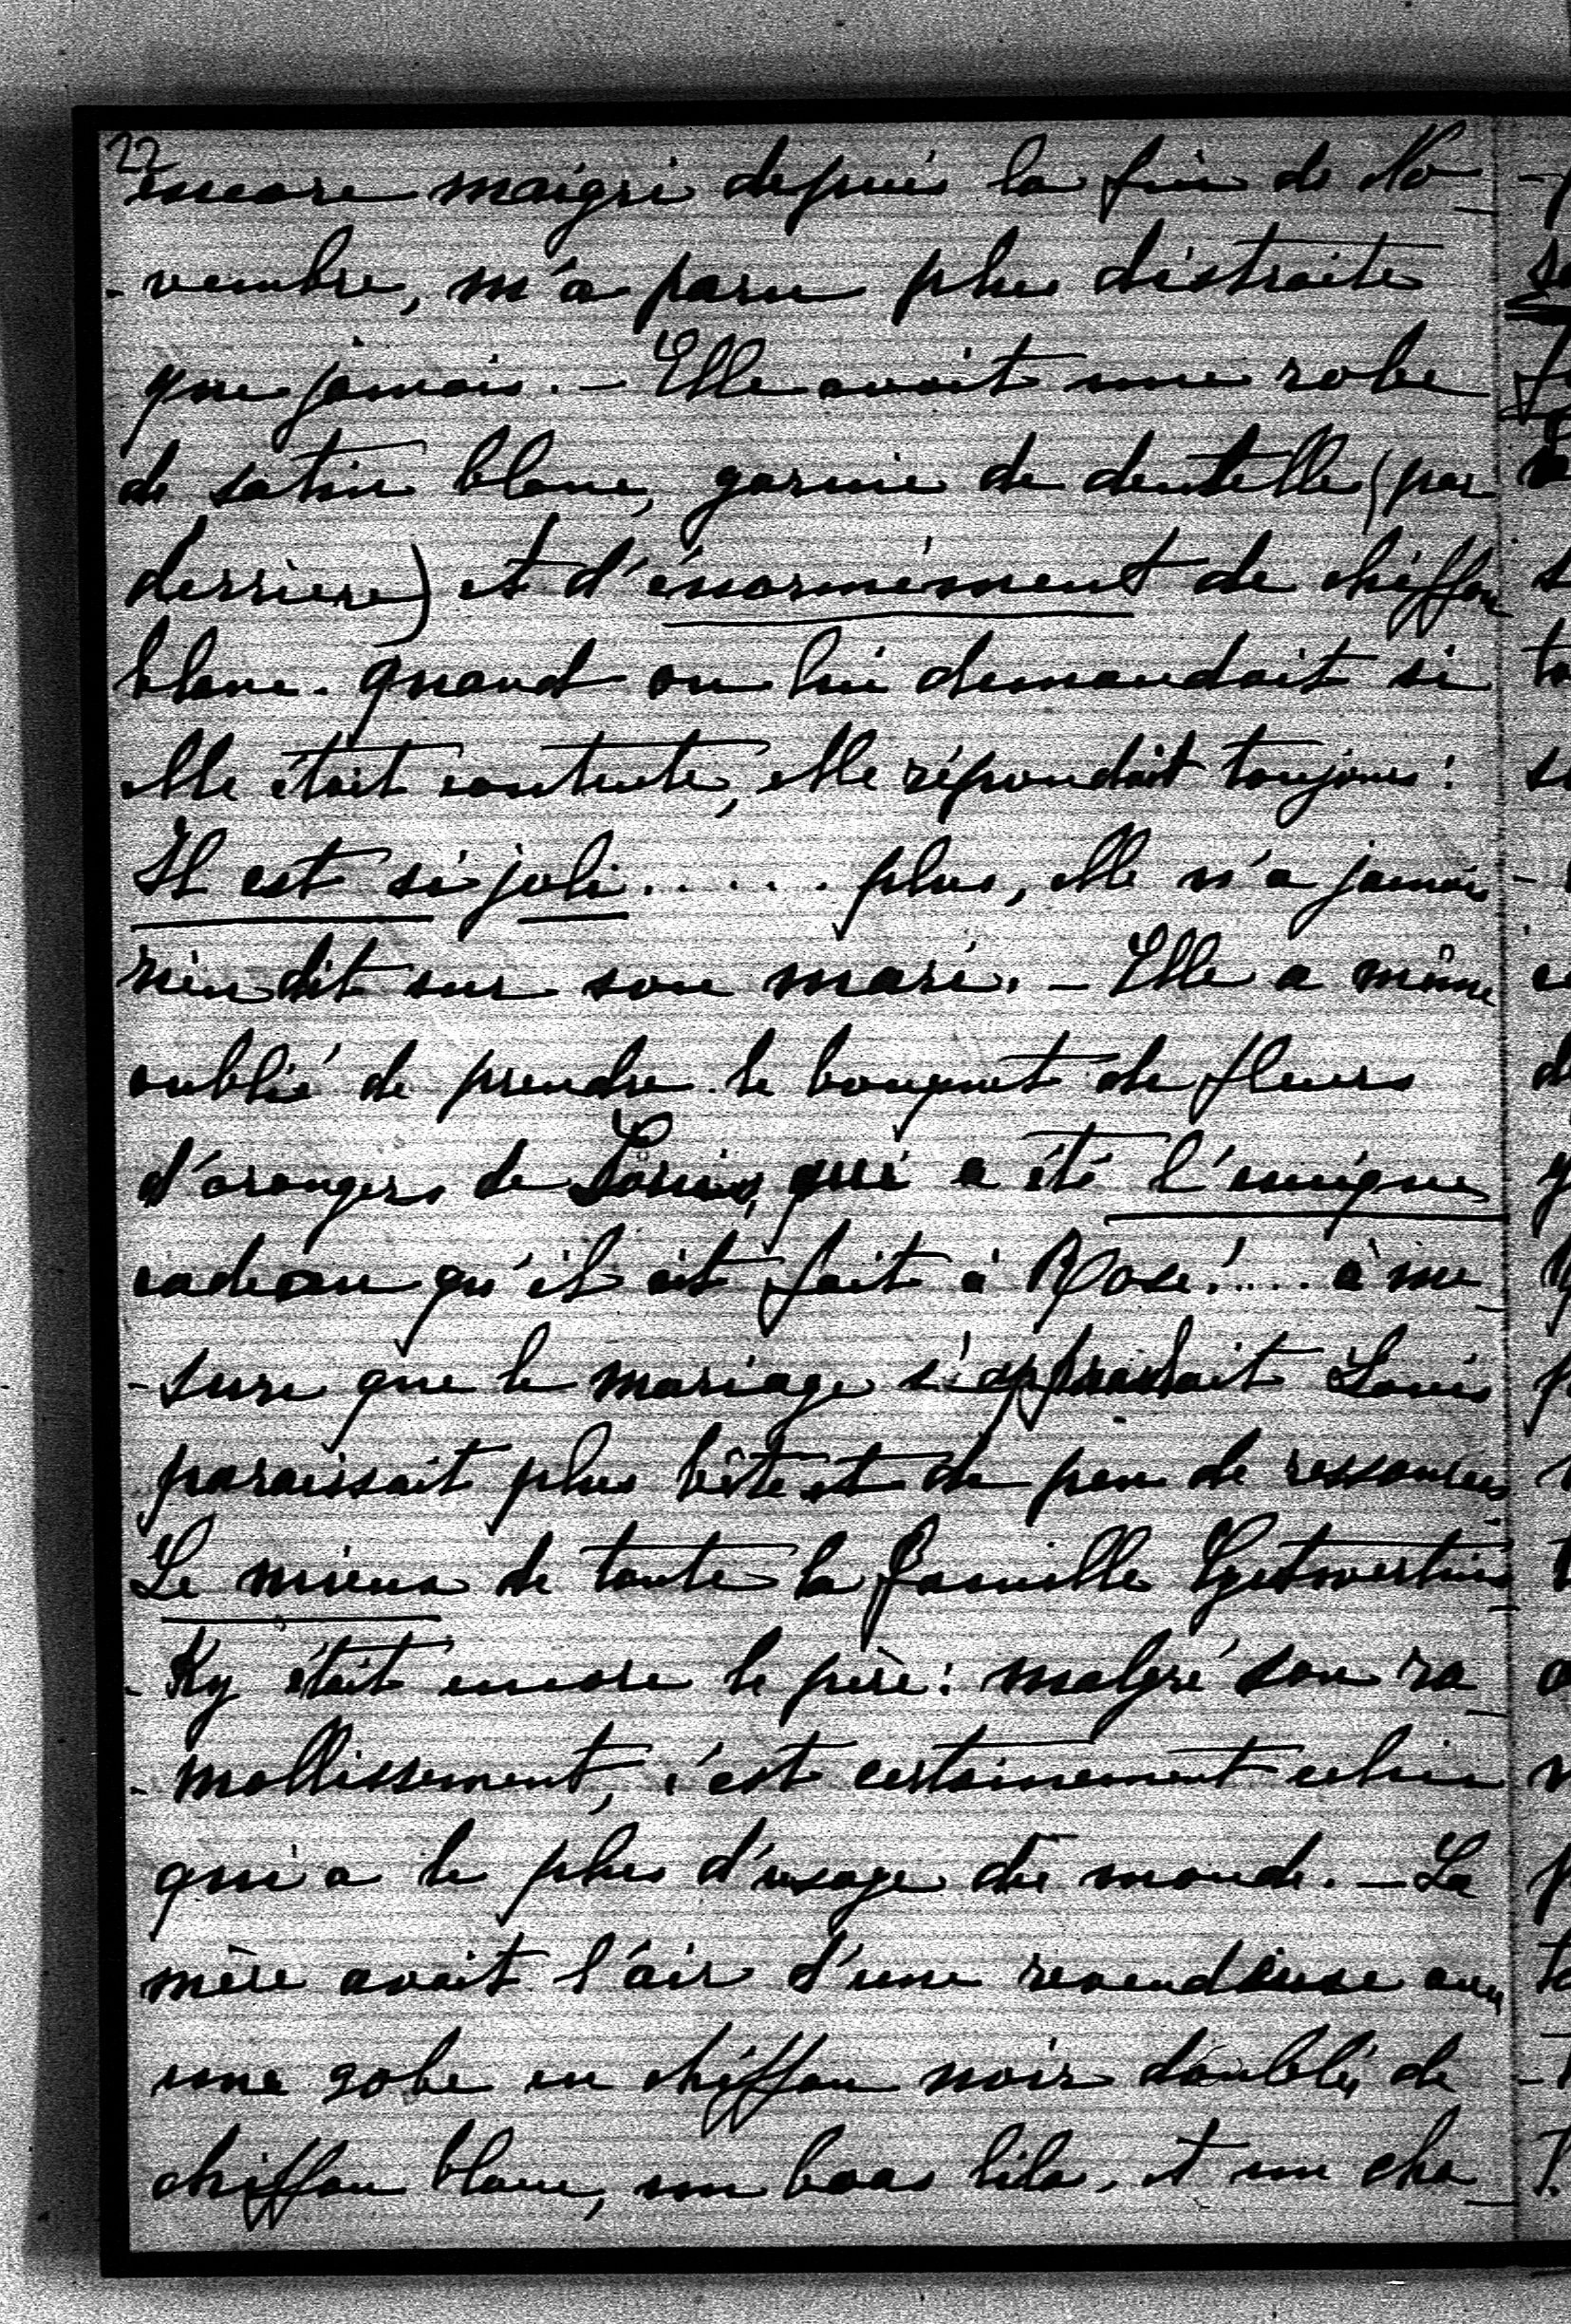 22
encore maigri depuis la fin de No-
-vembre, m'a paru plus distraite
que jamais. - Elle avait une robe
de satin blanc, garnie de dentelle (par
derrière) et d'énormément de chiffon
blanc. quand on lui demandait si
elle était contente, elle répondait toujours :
Il est si joli...... plus, elle n'a jamais
rien dit sur son mari. - Elle a même
oublié de prendre le bouquet de fleurs
d'orangers de Louis, qui a été l'unique
cadeau qu'il ait fait à Rose!.... à me-
-sure que le mariage s'approchait Louis
paraissait plus bête et de peu de ressources
Le mieux de toute la famille
-Ky était encore le père : malgré son ra-
-mollissement, c'est certainement celui
qui a le plus d'usage du monde. - La
mère avait l'air d'une revendeuse avec
une robe en chiffon noir doublé de
chiffon blanc, un boas lila, et un cha-